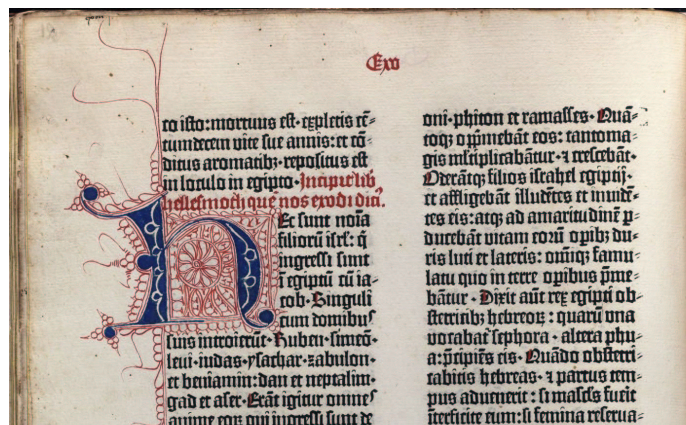 Exo
to isto: mortuus est· expletis cē-
tumdecem vite sue annis: et cō-
ditus aromatibꝫ· repositus est
in loculo in egipto· Incipit lib̄
hellesmoth quē nos exodi dicī.
Hec sunt noīa
filioꝝ isrl̄: q̄
ingressi sunt
ī egiptū cū ia-
cob· Singuli
cum domibus
suis introierūt· Ruben· simeō·
levi· iudas· ysachar· zabulon·
et beniamin: dan et neptalim·
gad et aser· Erāt igitur omnes
anime eoꝝ qui ingressi sunt de
oni· phiton et ramasses· Quā-
toqꝫ opp̄mebāt eos: tantoma-
gis mltiplicabātur· ⁊ crescebāt·
Oderātqꝫ filios israhel egiptij·
et affligebāt illudētes et invidē-
tes eis: atqꝫ ad amaritudinē ꝑ-
ducebāt vitam eoꝝ oꝑibꝫ du-
ris luti et lateris: omīqꝫ famu-
latu quo in terre oꝑibus p̄me-
bātur· Dixit aūt rex egipti ob-
stetricibꝫ hebreoꝝ: quarū vna
vocabat᷑ sephora· altera phu-
a: p̄cipiēs eis· Quādo obstetri-
cabitis hebreas· ⁊ partus tem-
pus advenerit: si masculus fuerit
īterficite eum: si femina reserva-